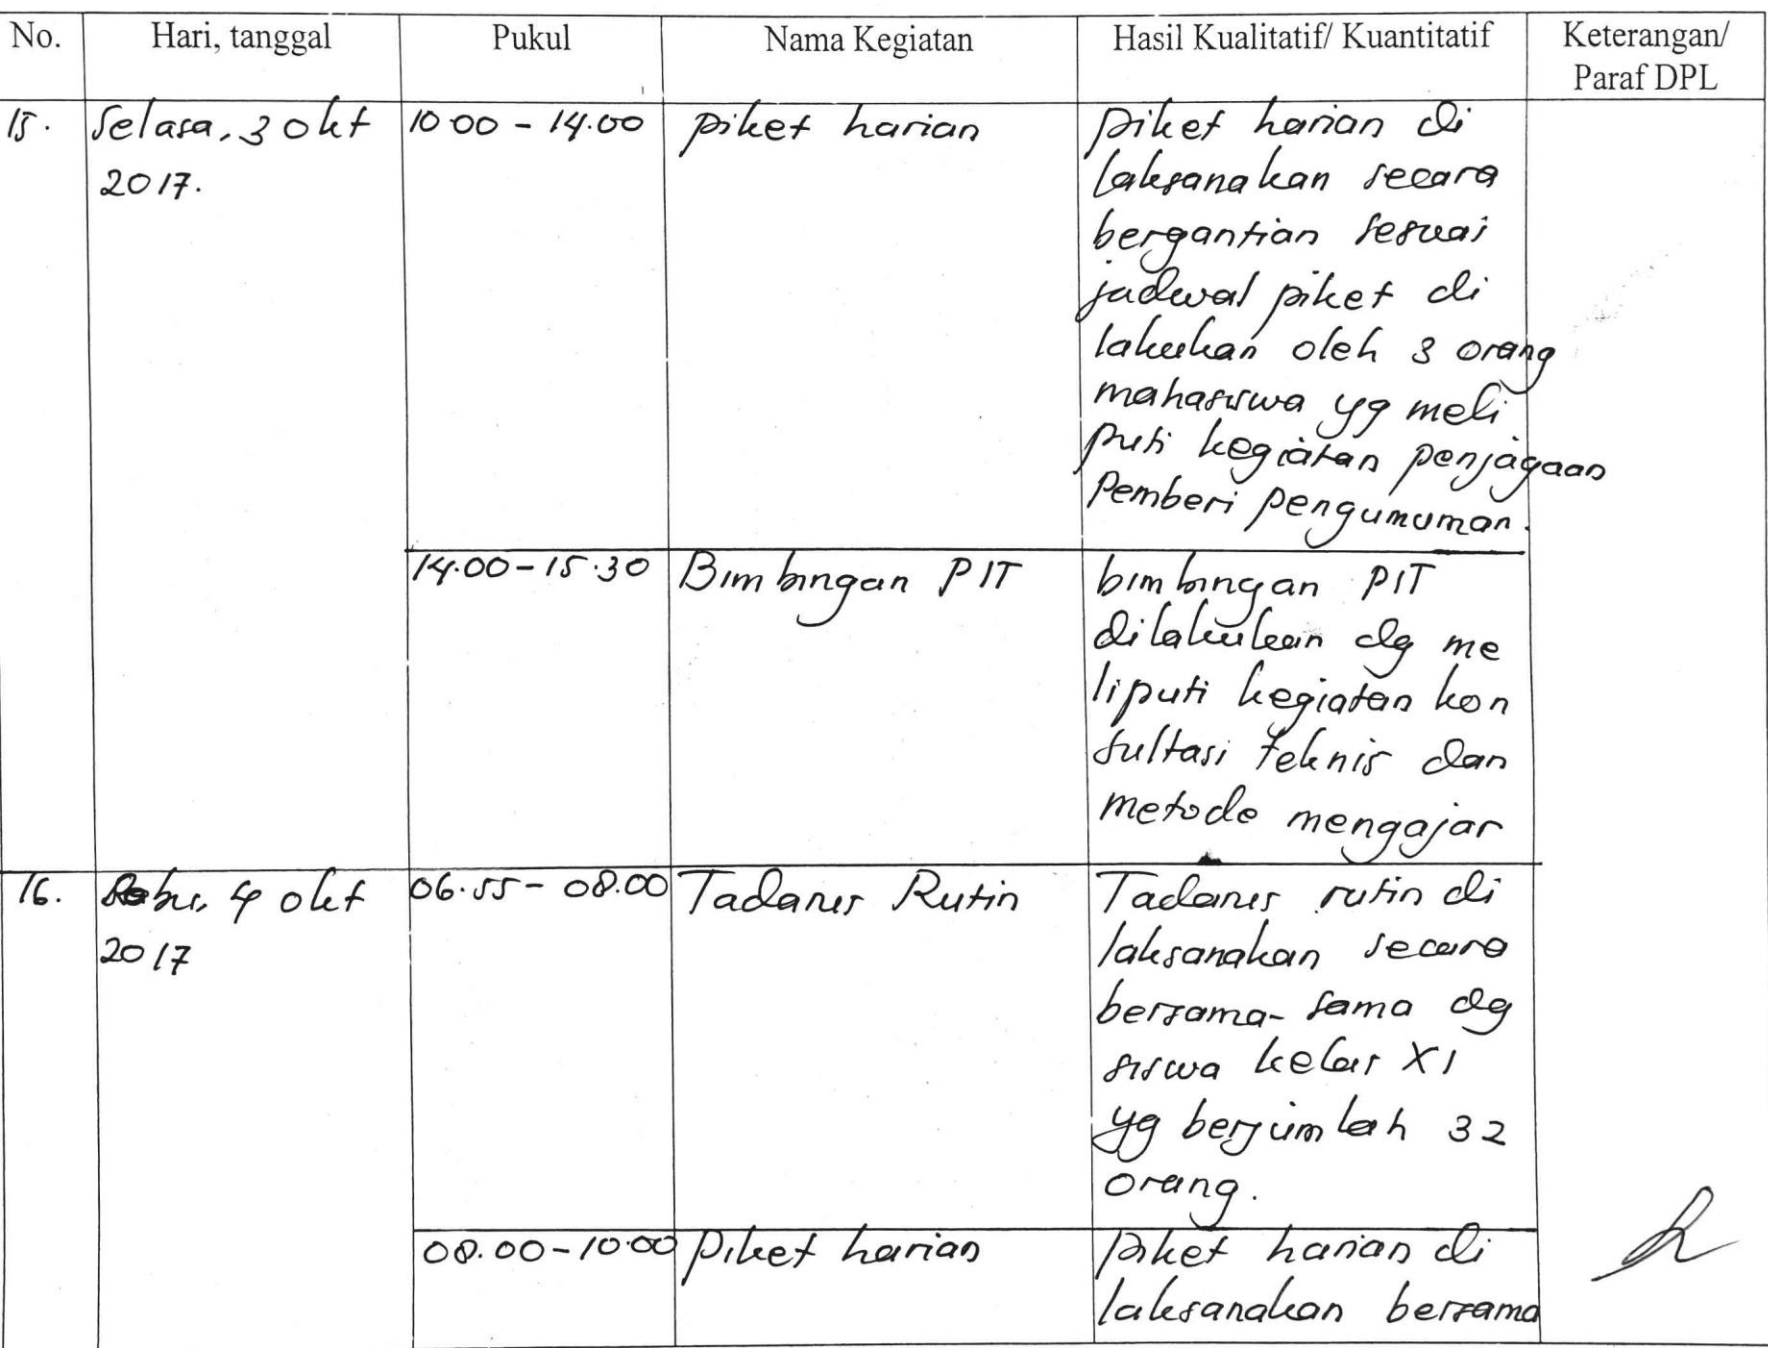 No. Hari, tanggal Pukul Nama Kegiatan Hasil Kualitatif/ Kuantitatif Keterangan/
Paraf DPL
15. Selasa, 3 okt 10.00 - 14.00 piket harian piket harian di
2017. laksanakan secara
bergantian sesuai
jadwal piket di
lakukan oleh 3 orang
mahasiswa yg meli
puti kegiatan penjagaan
Pemberi pengumuman.
14.00-15.30 Bimbingan PIT bimbingan PIT
dilakukan dg me
liputi kegiatan kon
sultasi teknis dan
metode mengajar
16. Rabu, 4 okt 06.55- 08.00 Tadarus Rutin Tadarus rutin di
2017 laksanakan secara
bersama- sama dg
siswa kelas XI
yg berjumlah 32
orang.
08.00-10.00 piket harian piket harian di
laksanakan bersama